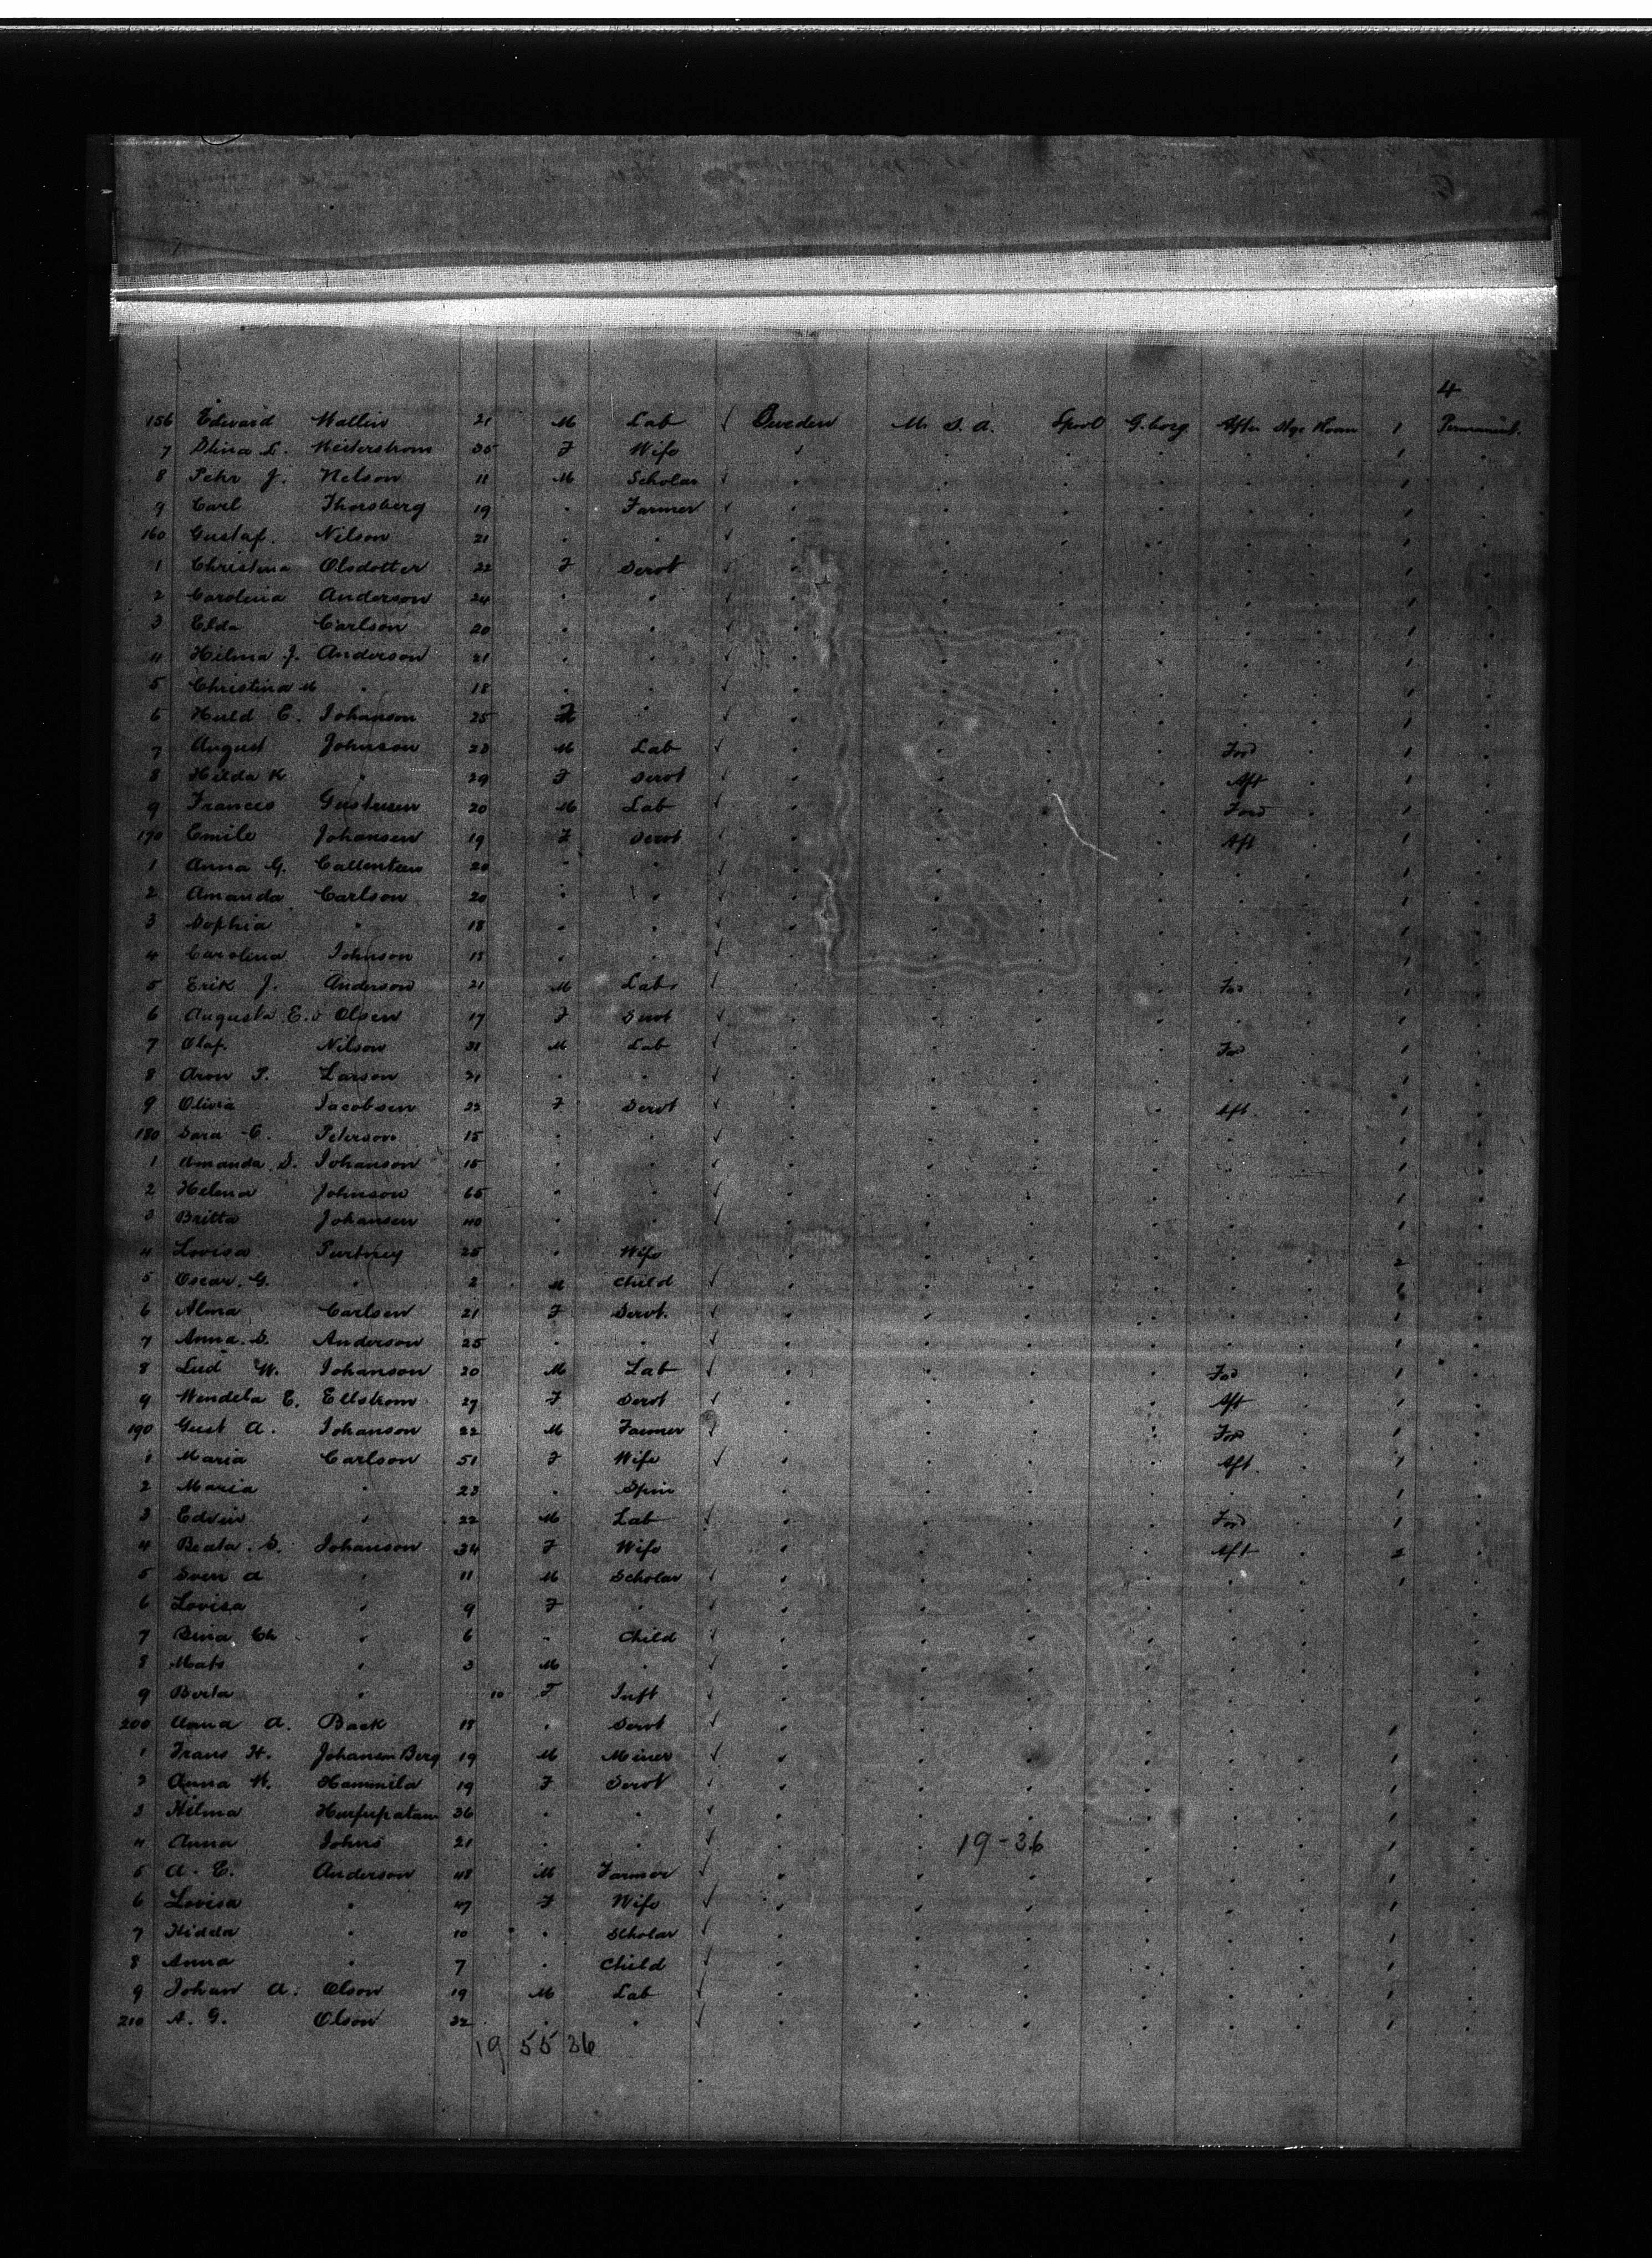 4
156 Edward Wallin 21 M Lab ✓ Sweden U. S. A. Lpool G.borg After Stge Room 1 Permanent.
7 Stina L. 35 F Wife " " " " " " 1 "
8 Pehr J. Nelson 11 M Scholar ✓ " " " " " " 1 "
9 Carl Thorsberg 19 " Farmer ✓ " " " " " " 1 "
160 Gustaf. Nilson 21 " " ✓ " " " " " " 1 "
1 Christina Olsdotter 22 F Servt ✓ " " " " " " 1 "
2 Carolina Anderson 24 " " ✓ " " " " " " 1 "
3 Elda Carlson 20 " " ✓ " " " " " " 1 "
4 Hilma J. Anderson 21 " " ✓ " " " " " " 1 "
5 Christina M " 18 " " ✓ " " " " " " 1 "
6 Huld C. Johanson 25 F " ✓ " " " " " " 1 "
7 August Johnson 28 M Lab ✓ " " " " Ford " 1 "
8 Hilda K " 29 F Servt ✓ " " " " Aft " 1 "
9 Frances 20 M Lab ✓ " " " " Ford " 1 "
170 Emile Johansen 19 F Servt ✓ " " " " Aft " 1 "
1 Anna G. 20 " " ✓ " " " " " " 1 "
2 Amanda Carlson 20 " " ✓ " " " " " " 1 "
3 Sophia " 18 " " ✓ " " " " " " 1 "
4 Carolina Johnson 18 " " ✓ " " " " " " 1 "
5 Erik J. Anderson 21 M Lab ✓ " " " " For " 1 "
6 Augusta E. Olsen 17 F Servt ✓ " " " " " " 1 "
7 Olaf. Nilson 31 M Lab ✓ " " " " For " 1 "
8 Aron P. Larson 21 " " ✓ " " " " " " 1 "
9 Olivia Jacobsen 22 F Servt ✓ " " " " Aft. " 1 "
180 Sara C. Peterson 15 " " ✓ " " " " " " 1 "
1 Amanda S. Johanson 15 " " ✓ " " " " " " 1 "
2 Helena Johnson 65 " " ✓ " " " " " " 1 "
3 Britta Johansen 40 " " ✓ " " " " " " 1 "
4 Lovisa 25 " Wife " " " " " " 2 "
5 Oscar. G. " 2 M Child ✓ " " " " " " "
6 Alma Carlsen 21 F Servt. ✓ " " " " " " 1 "
7 Anna. S. Anderson 25 " " ✓ " " " " " " 1 "
8 Lud W. Johanson 20 M Lab ✓ " " " " For " 1 "
9 Wendela E. Ellstrom 27 F Servt ✓ " " " " Aft " 1 "
190 Gust A. Johanson 22 M Farmer ✓ " " " " For " 1 "
1 Maria Carlson 51 F Wife ✓ " " " " Aft. " 1 "
2 Maria " 23 " Spin " " " " " " 1 "
3 Edvin " 22 M Lab ✓ " " " " Ford " 1 "
4 Beata. S. Johanson 34 F Wife " " " " Aft " 2 "
5 Sven A " 11 M Scholar ✓ " " " " " " 1 "
6 Lovisa " 9 F " ✓ " " " " " " "
7 Ch " 6 " Child ✓ " " " " " " "
8 Mats " 3 M " ✓ " " " " " " "
9 Berta " 10 F Inft ✓ " " " " " " "
200 Anna A. Back 18 " Servt ✓ " " " " " " 1 "
1 Frans H. Johansen Berg 19 M Miner ✓ " " " " " " 1 "
2 Anna W. Hammila 19 F Servt ✓ " " " " " " 1 "
3 Hilma 36 " " ✓ " " " " " " 1 "
4 Anna Johns 21 " " ✓ " 19-36 " " " " 1 "
5 A. E. Anderson 48 M Farmer ✓ " " " " " " 1 "
6 Lovisa " 47 F Wife ✓ " " " " " " 1 "
7 Hidda " 10 " Scholar ✓ " " " " " " 1 "
8 Anna " 7 " Child ✓ " " " " " " 1 "
9 Johan A. Olson 19 M Lab ✓ " " " " " " 1 "
210 A. G. Olson 22 " " ✓ " " " " " " 1 "
19 55 36